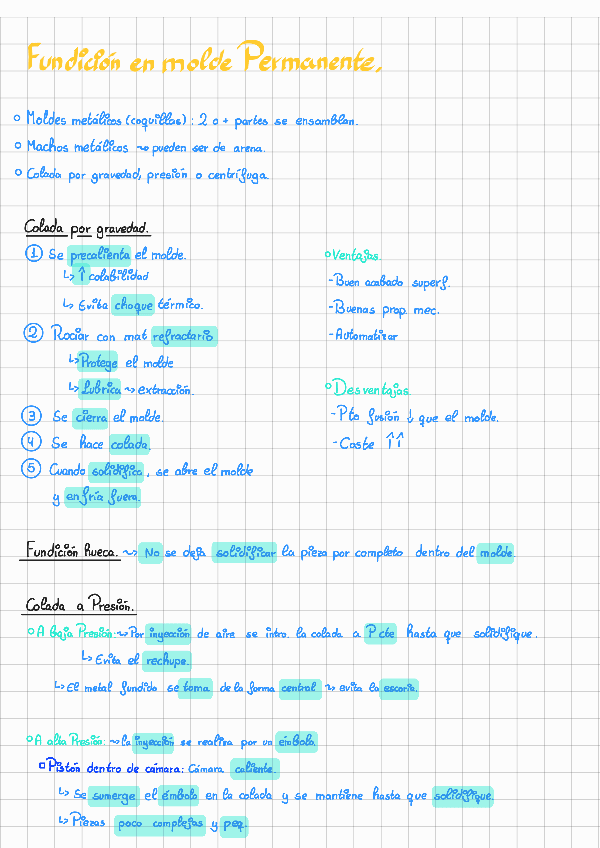 Fundición en molde Permanente.
o Moldes metálicos (coquillas) : 2 o + partes se ensamblan.
o Machos metálicos ⤳ pueden ser de arena.
o Colada por gravedad, presión o centrífuga.
Colada por gravedad.
① Se precalienta el molde.
↳ ↑ colabilidad
↳ Evita choque térmico.
② Rociar con mat refractario
↳ Protege el molde
↳ Lubrica ⤳ extracción.
③ Se cierra el molde.
④ Se hace colada.
⑤ Cuando solidifico, se abre el molde
y enfría fuera.
o Ventajas
- Buen acabado superf.
- Buenas prop. mec.
- Automatizar
o Desventajas.
- Pto fusión ↓ que el molde.
- Coste ↑↑
Fundición hueca. ⤳ No se deja solidificar la pieza por completo dentro del molde.
Colada a Presión.
o A baja Presión: ⤳ Por inyección de aire se intro. la colada a P cte hasta que solidifique.
↳ Evita el rechupe.
↳ El metal fundido se toma de la forma central ⤳ evita la escoria.
o A alta Presión: ⤳ la inyección se realiza por un émbolo.
□ Pistón dentro de cámara: Cámara caliente.
↳ Se sumerge el émbolo en la colada y se mantiene hasta que solidifique.
↳ Piezas poco complejas y peq.